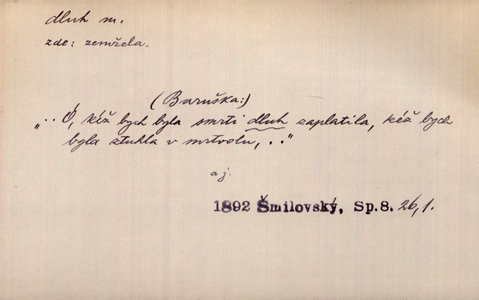 dluh m.
zde: zemřela.
(Baruška:)
„.. Ó, kéž bych byla smrti dluh zaplatila, kéž bych
byla ztuhla v mrtvolu, .."
a j.
1892 Šmilovský, Sp.8. 26,1.